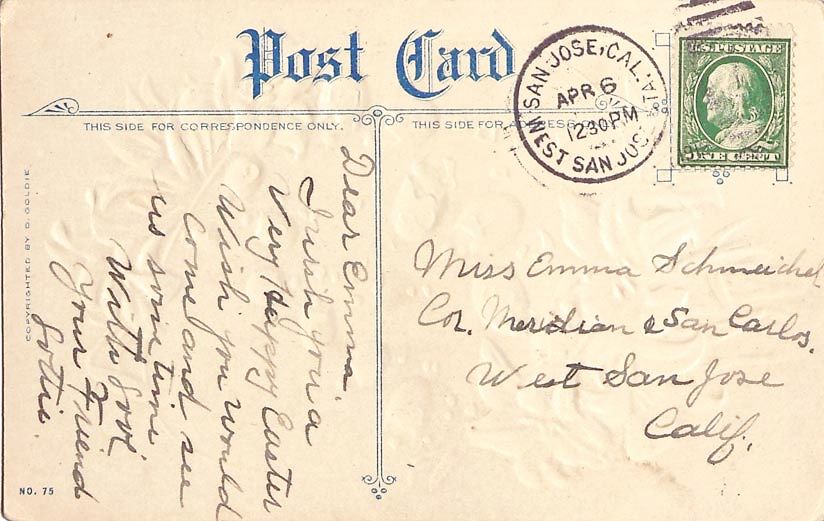 Post Card
THIS SIDE FOR CORRESPONDENCE ONLY.
THIS SIDE FOR
SAN JOSE, CAL.
APR 6
1230PM
WEST SAN JOSE
U.S. POSTAGE
ONE CENT
Dear Emma.
I wish you a
Very Happy Easter
Wish you would
come and see
us some time
With Love
Your Friend
Lottie
Miss Emma Schmeichel
Cor. Meridian & San Carlos.
West San Jose
Calif.
COPYRIGHTED BY D. GOLDIE.
NO. 75